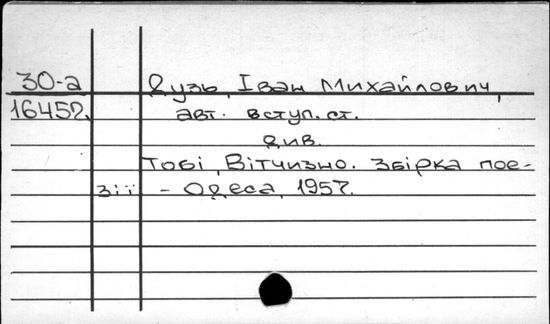 30-а Дузь, Іван Михайлович,
16452. авт. вступ. ст.
див.
Тобі, Вітчизно. Збірка пое-
зії - Одеса, 1957.